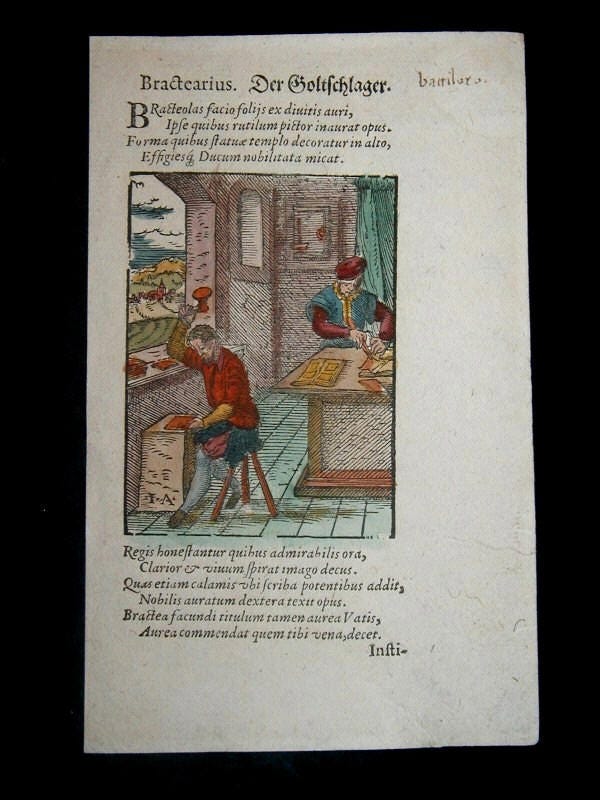 Bractearius. Der Goltschlager.
BRacteolas facio folijs ex diuitis auri,
Ipse quibus rutilum pictor inaurat opus.
Forma quibus statuæ templo decoratur in alto,
Effigiesq́ Ducum nobilitata micat.
I·A·
Regis honestantur quibus admirabilis ora,
Clarior & viuum spirat imago decus.
Quas etiam calamis vbi scriba potentibus addit,
Nobilis auratum dextera texit opus.
Bractea facundi titulum tamen aurea Vatis,
Aurea commendat quem tibi vena, decet.
Insti-